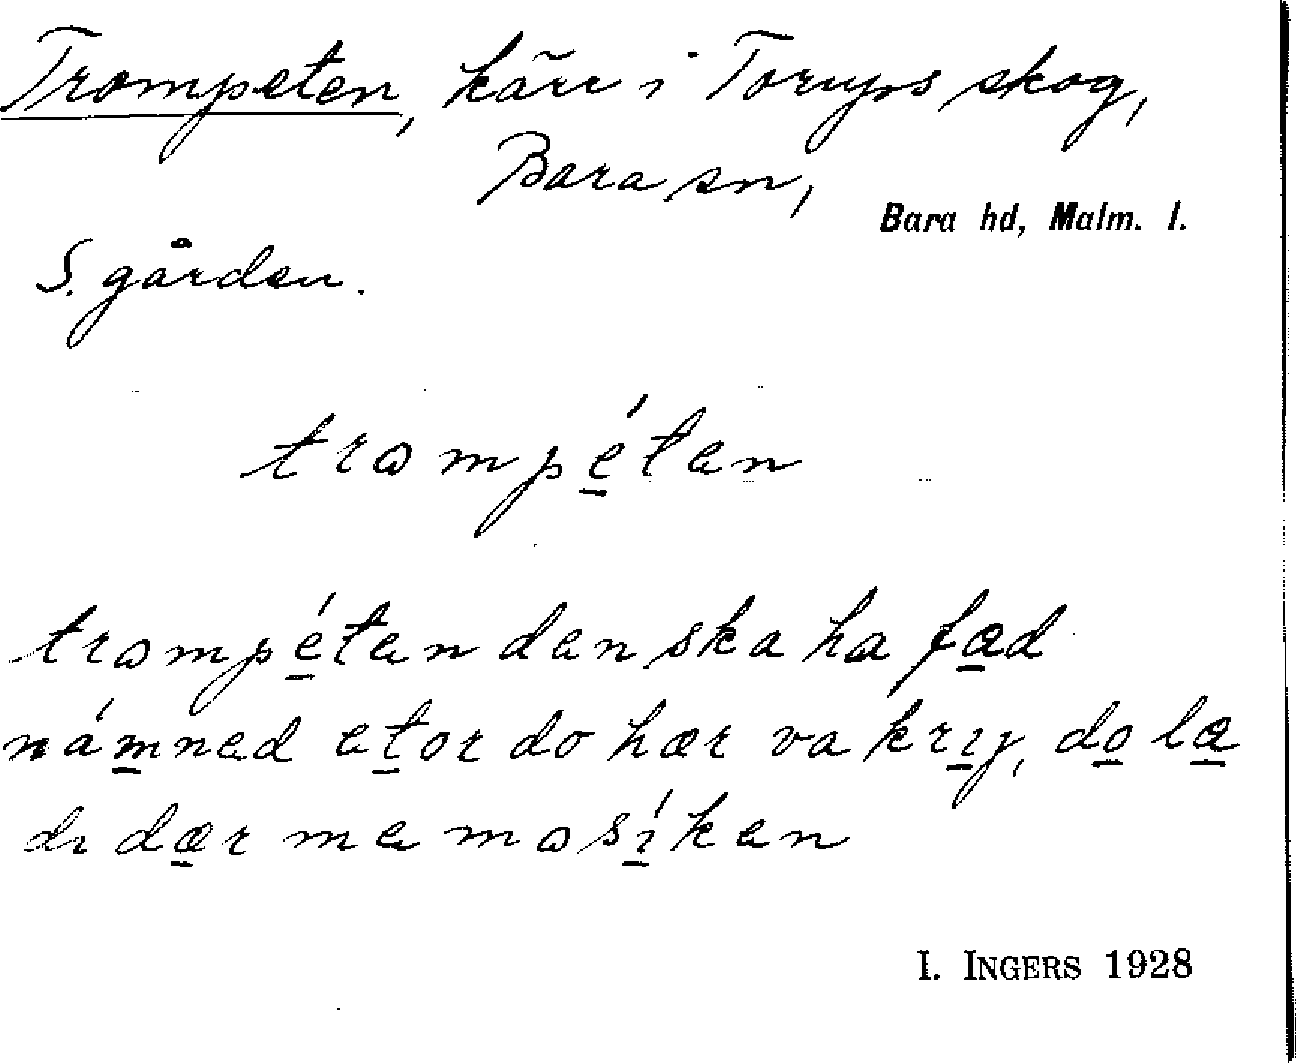 Trompeten, kärr i Torups skog,
Bara sn,
Bara hd, Malm. l.
S. gården.
trompéten
trompéten den ska ha fæd
námned etor do hær va kry, do læ
di dær me mosíken
I. INGERS 1928